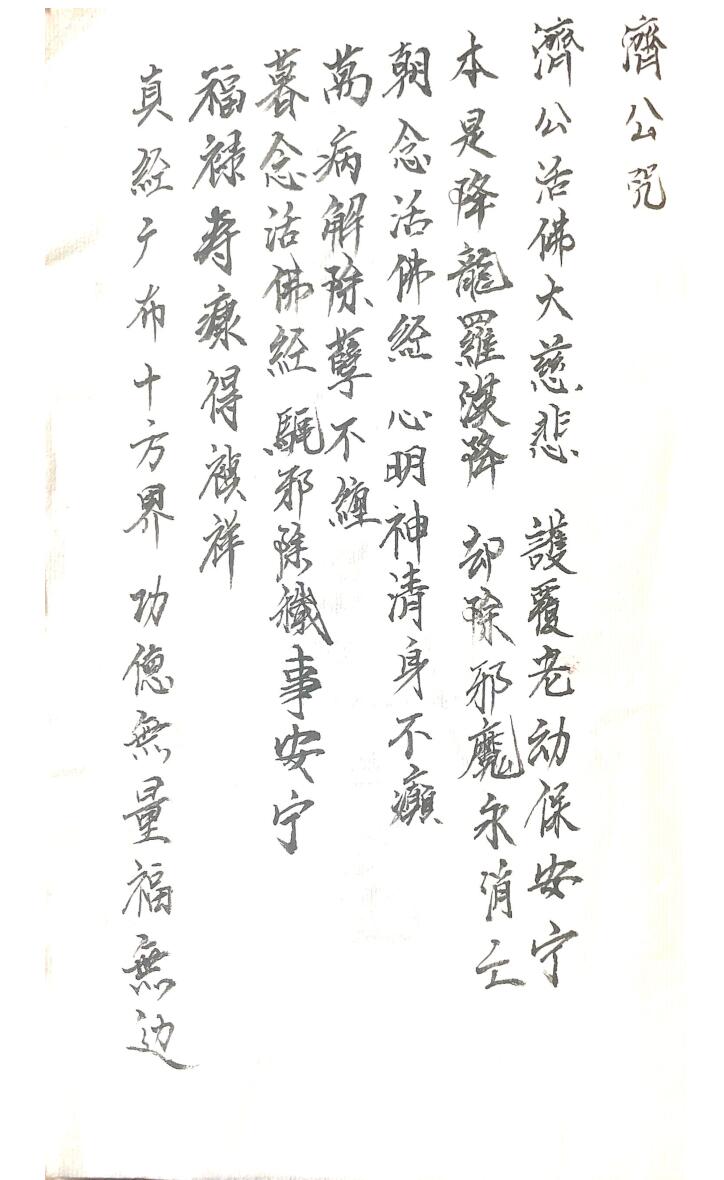 濟公咒
濟公活佛大慈悲 護覆老幼保安宁
本是降龍羅漢降 却除邪魔永消亡
朝念活佛經 心明神清身不癲
萬病解除孽不纏
暮念活佛經 驅邪除穢事安宁
福禄寿康得禎祥
真經广布十方界 功德無量福無边